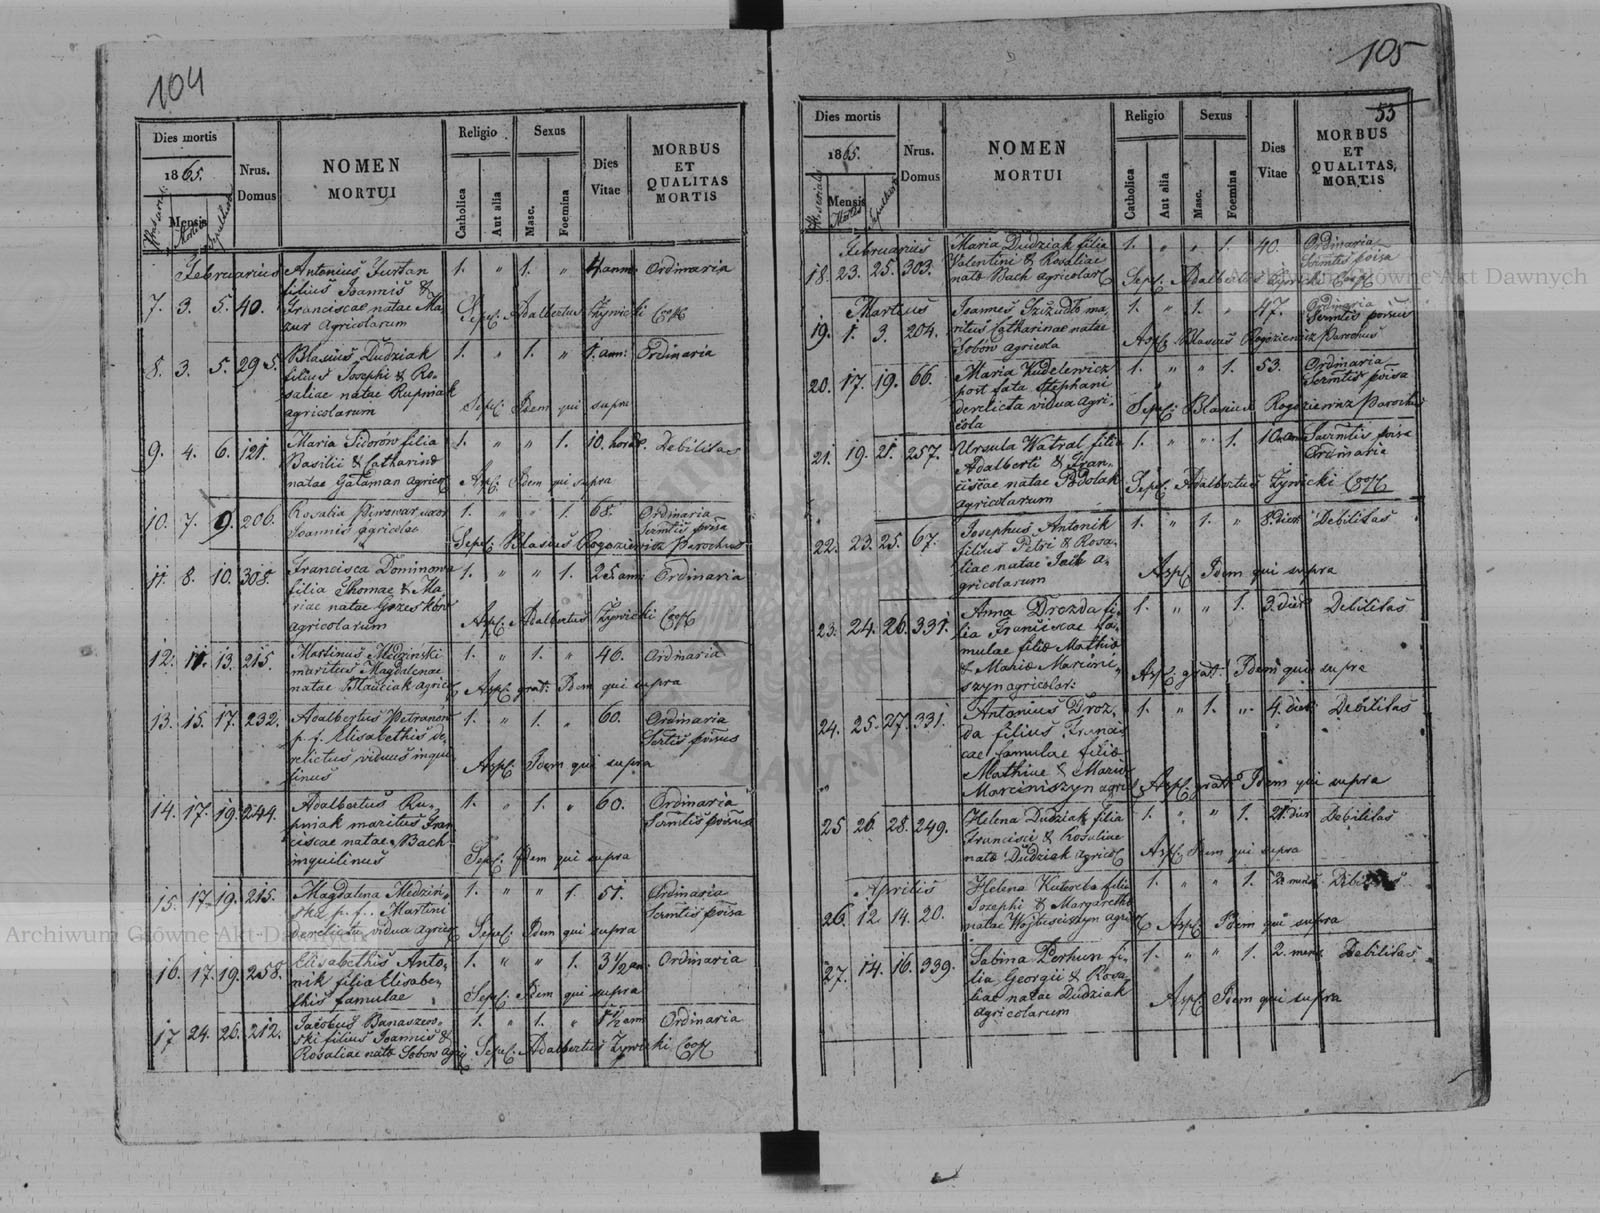 104
Dies mortis
1865.
Mensis
Mortis
Sepulturae
Nrus.
Domus
NOMEN
MORTUI
Religio
Catholica
Aut alia
Sexus
Masc.
Foemina
Dies
Vitae
MORBUS
ET
QUALITAS
MORTIS
Februarius
7. 3. 5. 40. Antonius Furtan 1. " 1. " 4 anni Ordinaria
filius Joannis &
Franciscae natae Ma
zur agricolarum
Sepel: Adalbertus Żywicki Coop
8. 3. 5. 295. Blasius Dudziak 1. " 1. " 1. ann: Ordinaria
filius Josephi & Ro-
saliae natae Rupniak
agricolarum
Sepel: Idem qui supra
9. 4. 6. 121. Maria Sidorów filia 1. " " 1. 10. horae Debilitas
Basilii & Catharinae
natae Gataman agricol
Asp: Idem qui supra
10. 7. 9. 206. Rosalia Piwowar uxor 1. " " 1. 68. Ordinaria
Joannis agricolae
Scrmtis prvisa
Sepel: Blasius Rogoziewicz Parochus
11. 8. 10. 308. Francisca Dominowa 1. " " 1. 25. ann: Ordinaria
filia Thomae & Ma
riae natae Grzesków
agricolarum
Asp: Adalbertus Żywicki Coop
12. 11. 13. 215. Martinus Medziński 1. " 1. " 46. Ordinaria
maritus Magdalenae
natae Stańciak agricol
Asp: grat: Idem qui supra
13. 15. 17. 232. Adalbertus Petranów 1. " 1. " 60. Ordinaria
p. f. Elisabethis de-
relictus viduus inqui
linus
Scrtis prvisus
Asp: Idem qui supra
14. 17. 19. 244. Adalbertus Ru- 1. " 1. " 60. Ordinaria
pniak maritus Fran
ciscae natae Bach
inquilinus
Scrmtis prvisus
Sepel: Idem qui supra
15. 17. 19. 215. Magdalena Medziń- 1. " " 1. 51. Ordinaria
ska p. f. Martini
derelicta vidua agricol
Scrmtis prvisa
Sepel: Idem qui supra
16. 17. 19. 258. Elisabethis Anto- 1. " " 1. 3 1/2 an: Ordinaria
nik filia Elisabe-
this famulae
Sepel: Idem qui supra
17 24. 26. 212. Jacobus Banaszew- 1. " 1. " 1 1/2 ann Ordinaria
ski filius Joannis &
Rosaliae natae Sobow agri
Sepel: Adalbertus Żywicki Coop
105
53
Dies mortis
1865.
Nr serialis
Mensis
Mortis
Sepulturae
Nrus.
Domus
NOMEN
MORTUI
Religio
Catholica
Aut alia
Sexus
Masc.
Foemina
Dies
Vitae
MORBUS
ET
QUALITAS,
MORTIS
Februarius
18. 23. 25. 303. Maria Dudziak filia 1. " " 1. 40. Ordinaria
Valentini & Rosaliae
natae Bach agricolar
Scrmtis prvisa
Sepel: Adalbertus Żywicki Coop
Martius
19. 1. 3. 204. Joannes Szizudło ma- 1. " 1. " 47. Ordinaria
ritus Catharinae natae
Sobów agricola
Scrmtis prvisus
Asp: Blasius Rogoziewicz Parochus
20. 17. 19. 66. Maria Kudelewicz 1. " " 1. 53. Ordinaria
post fata Stephani
derelicta vidua agri-
cola
Scrmtis prvisa
Sepel: Blasius Rogoziewicz Parochus
21. 19. 21. 257. Ursula Watral filia 1. " " 1. 10 ann Sacrmtis prvisa
Adalberti & Fran-
ciscae natae Podolak
agricolarum
Ordinaria
Sepel: Adalbertus Żywicki Coop
22. 23. 25. 67. Josephus Antonik 1. " 1. " 8. dier Debilitas
filius Petri & Rosa-
liae natae Jack a-
gricolarum
Asp: Idem qui supra
23. 24. 26. 331. Anna Drozda fi- 1. " " 1. 3. dier Debilitas
lia Franciscae fa-
mulae filiae Mathiae
& Mariae Marcini-
szyn agricolar:
Asp: grat: Idem qui supra
24. 25. 27. 331. Antonius Droz- 1. " 1. " 4. dier Debilitas
da filius Francis-
cae famulae filiae
Mathiae & Mariae
Marciniszyn agric
Asp: grat: Idem qui supra
25 26. 28. 249. Helena Dudziak filia 1. " " 1. 21. dier Debilitas
Francisci & Rosaliae
natae Dudziak agricol
Asp: Idem qui supra
Aprilis
26. 12. 14. 20. Helena Kuterba filia 1. " " 1. 2 mens. Debilitas
Josephi & Margarethae
natae Wojtusiszyn agric
Asp: Idem qui supra
27. 14. 16. 339. Sabina Perhun fi- 1. " " 1. 2. mens Debilitas
lia Georgii & Rosa-
liae natae Dudziak
agricolarum
Asp: Idem qui supra
Archiwum Główne Akt Dawnych
Archiwum Główne Akt Dawnych